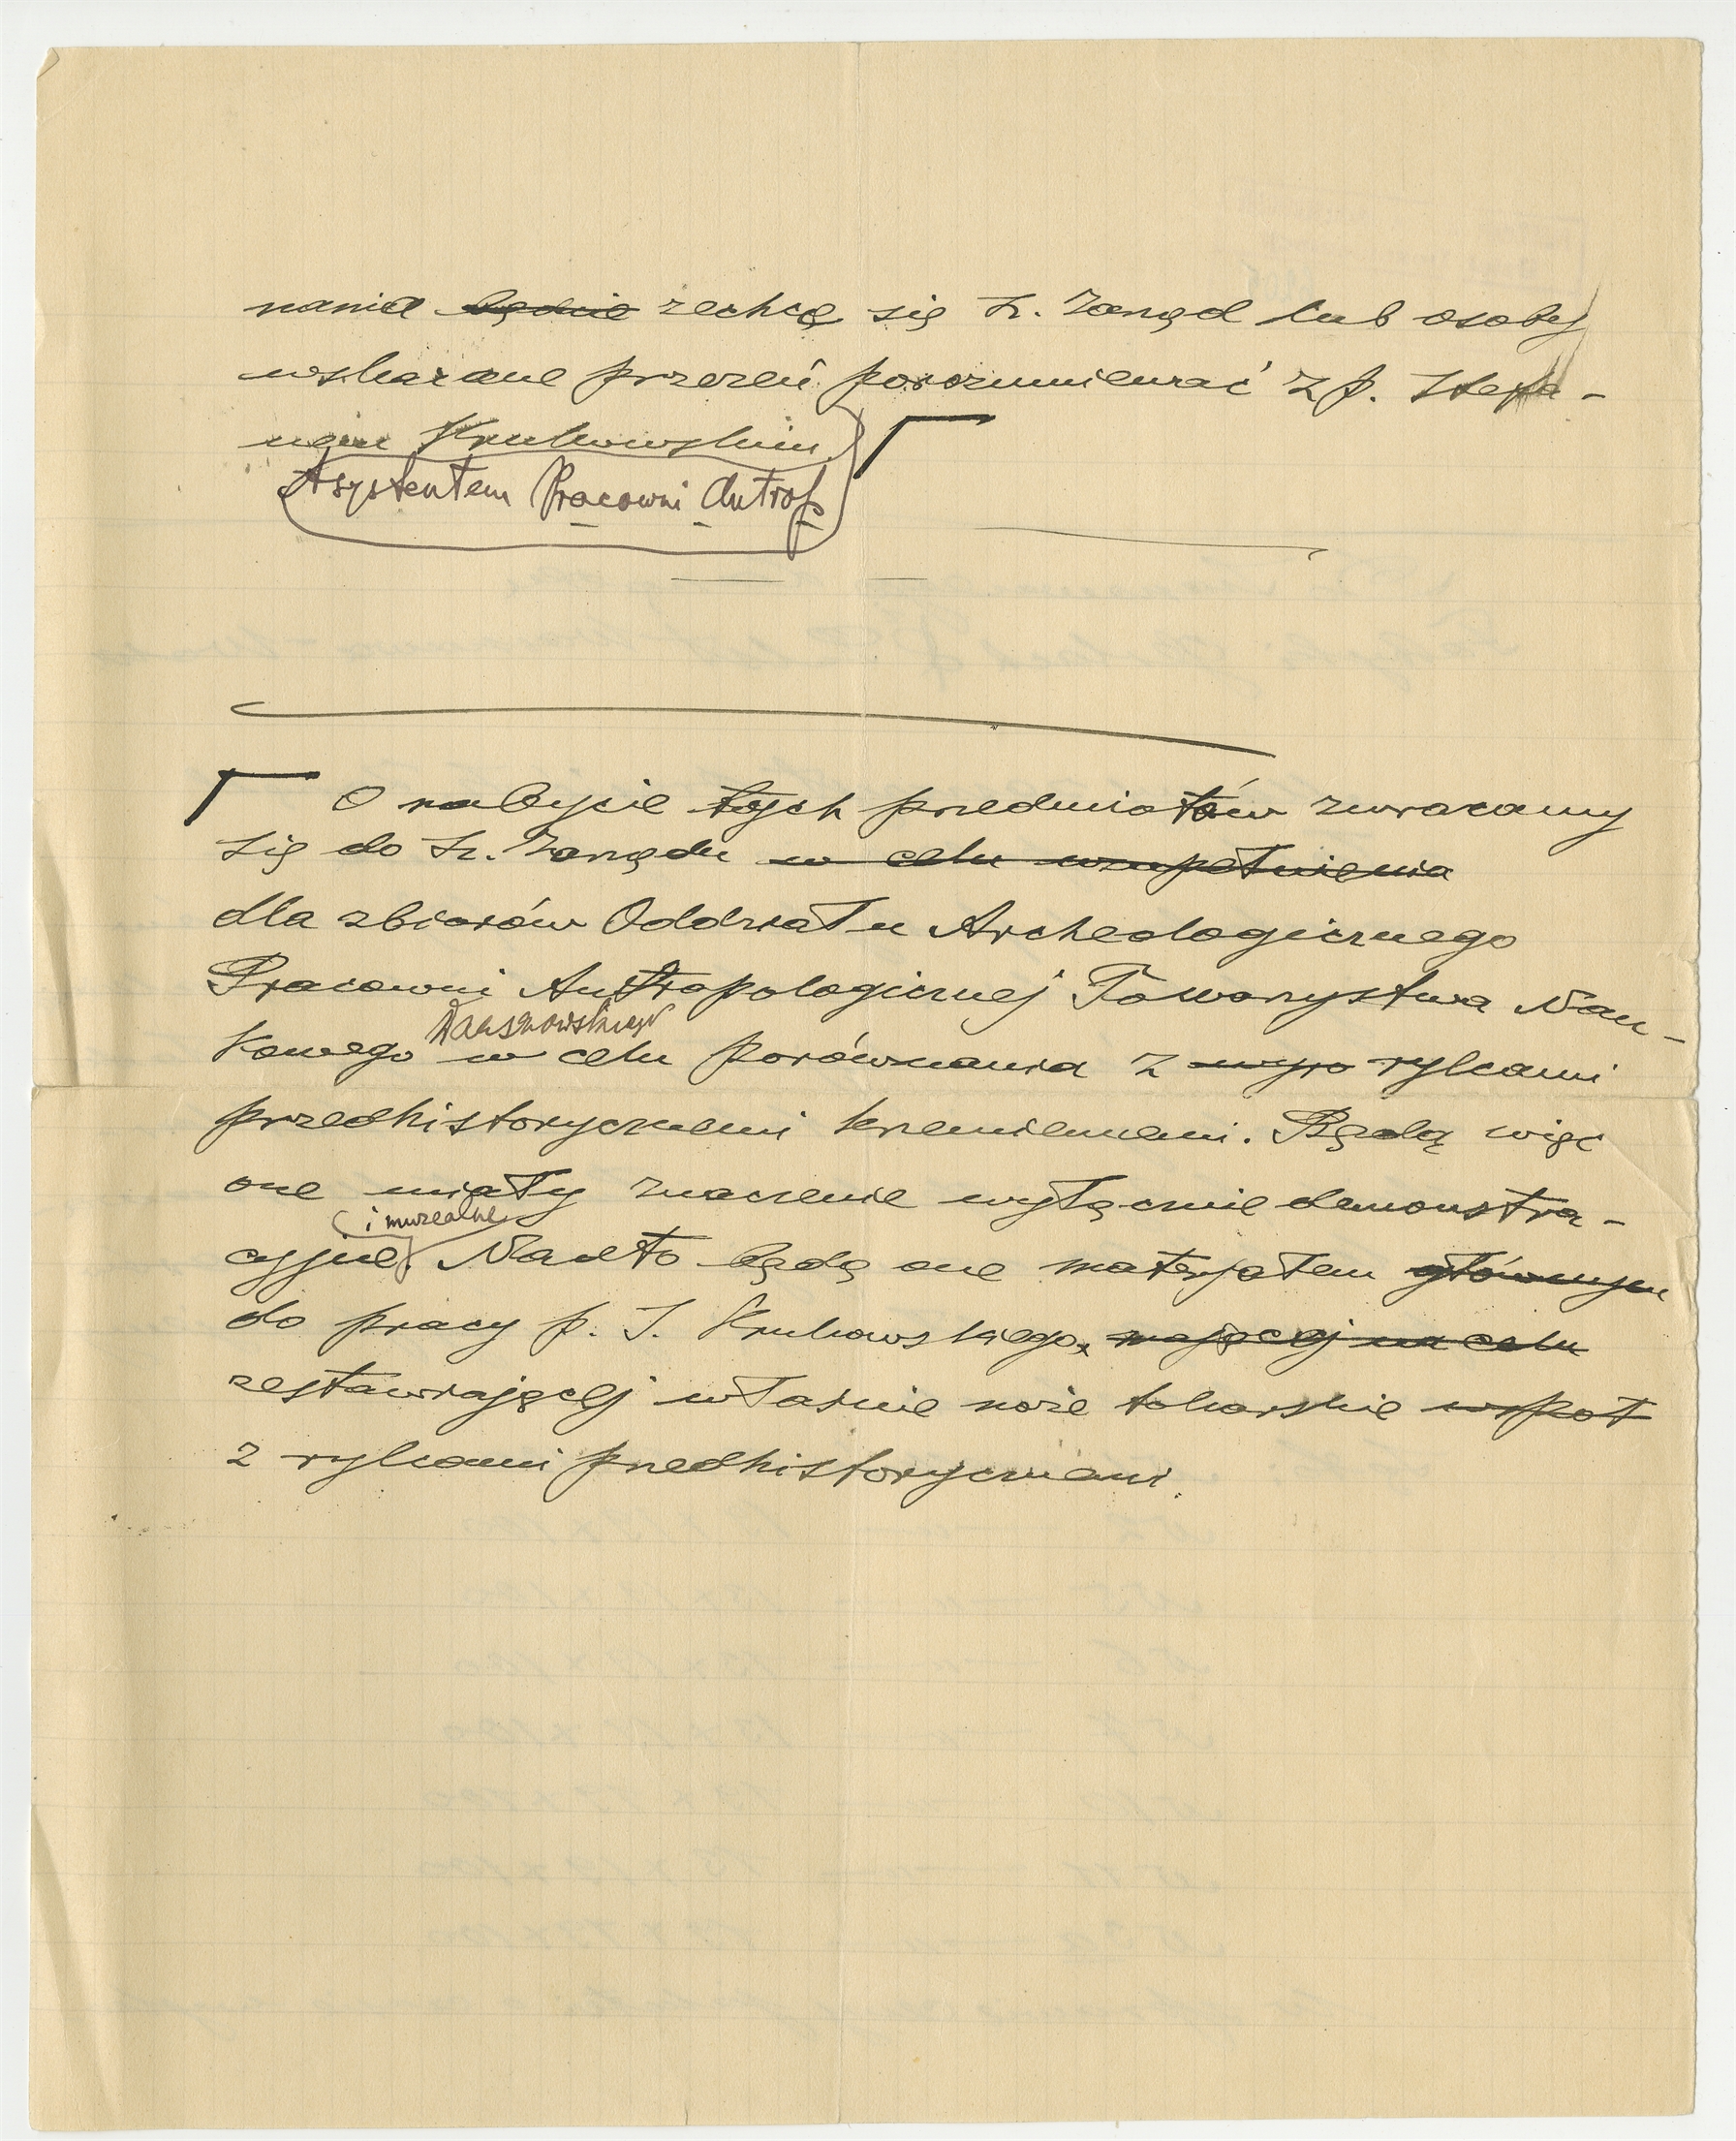 nania będzie zechcą się Sz. Zarząd lub osoby
wskazane przezeń porozumiewać z p. Stefa-
nem Krukowskim
Asystentem Pracowni Antrop
O nabycie tych przedmiotów zwracamy
się do Sz. Zarządu w celu uzupełnienia
dla zbiorów Oddziału Archeologicznego
Pracowni Antropologicznej Towarzystwa Nau-
Warszawskiego
kowego w celu porównania z wyro rylcami
przedhistorycznemi krzemiennemi. Będą więc
one miały znaczenie wyłącznie demonstra-
i muzealne
cyjne Nadto będą one materjałem głównym
do pracy p. S. Krukowskiego, mającej na celu
zestawiającej właśnie noże tokarskie wspoł
z rylcami przedhistorycznemi.